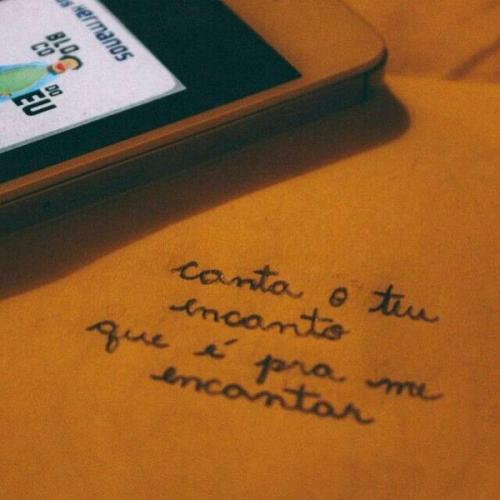 Hermanos
BLO
CO
DO
EU
canta o teu
encanto
que é pra me
encantar